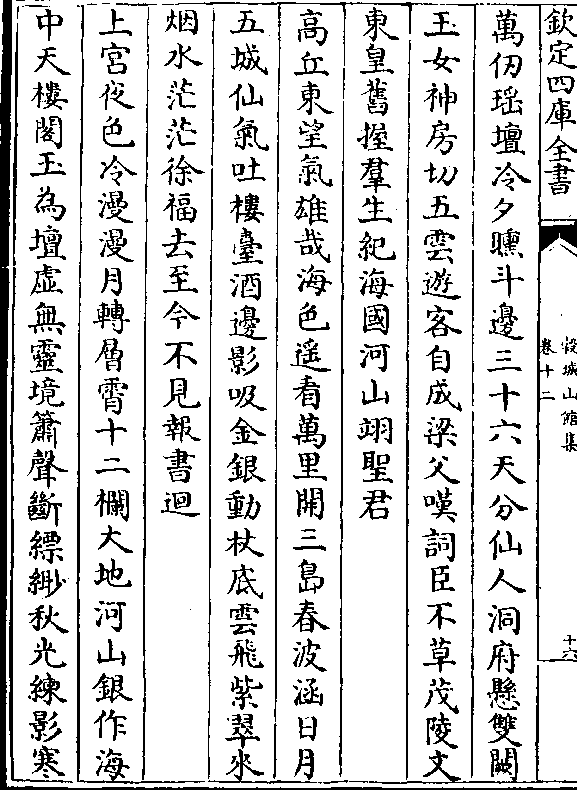 欽定四庫全書
穀城山館集
卷十二
十六
萬仞瑶壇冷夕曛斗邊三十六天分仙人洞府懸雙闕
玉女神房切五雲遊客自成梁父嘆詞臣不草茂陵文
東皇舊握羣生紀海國河山翊聖君
高丘東望氣雄哉海色遥看萬里開三島春波涵日月
五城仙氣吐樓臺酒邊影吸金銀動杖底雲飛紫翠來
烟水茫茫徐福去至今不見報書迴
上宮夜色冷漫漫月轉層霄十二欄大地河山銀作海
中天樓閣玉為壇虛無靈境簫聲斷縹緲秋光練影寒